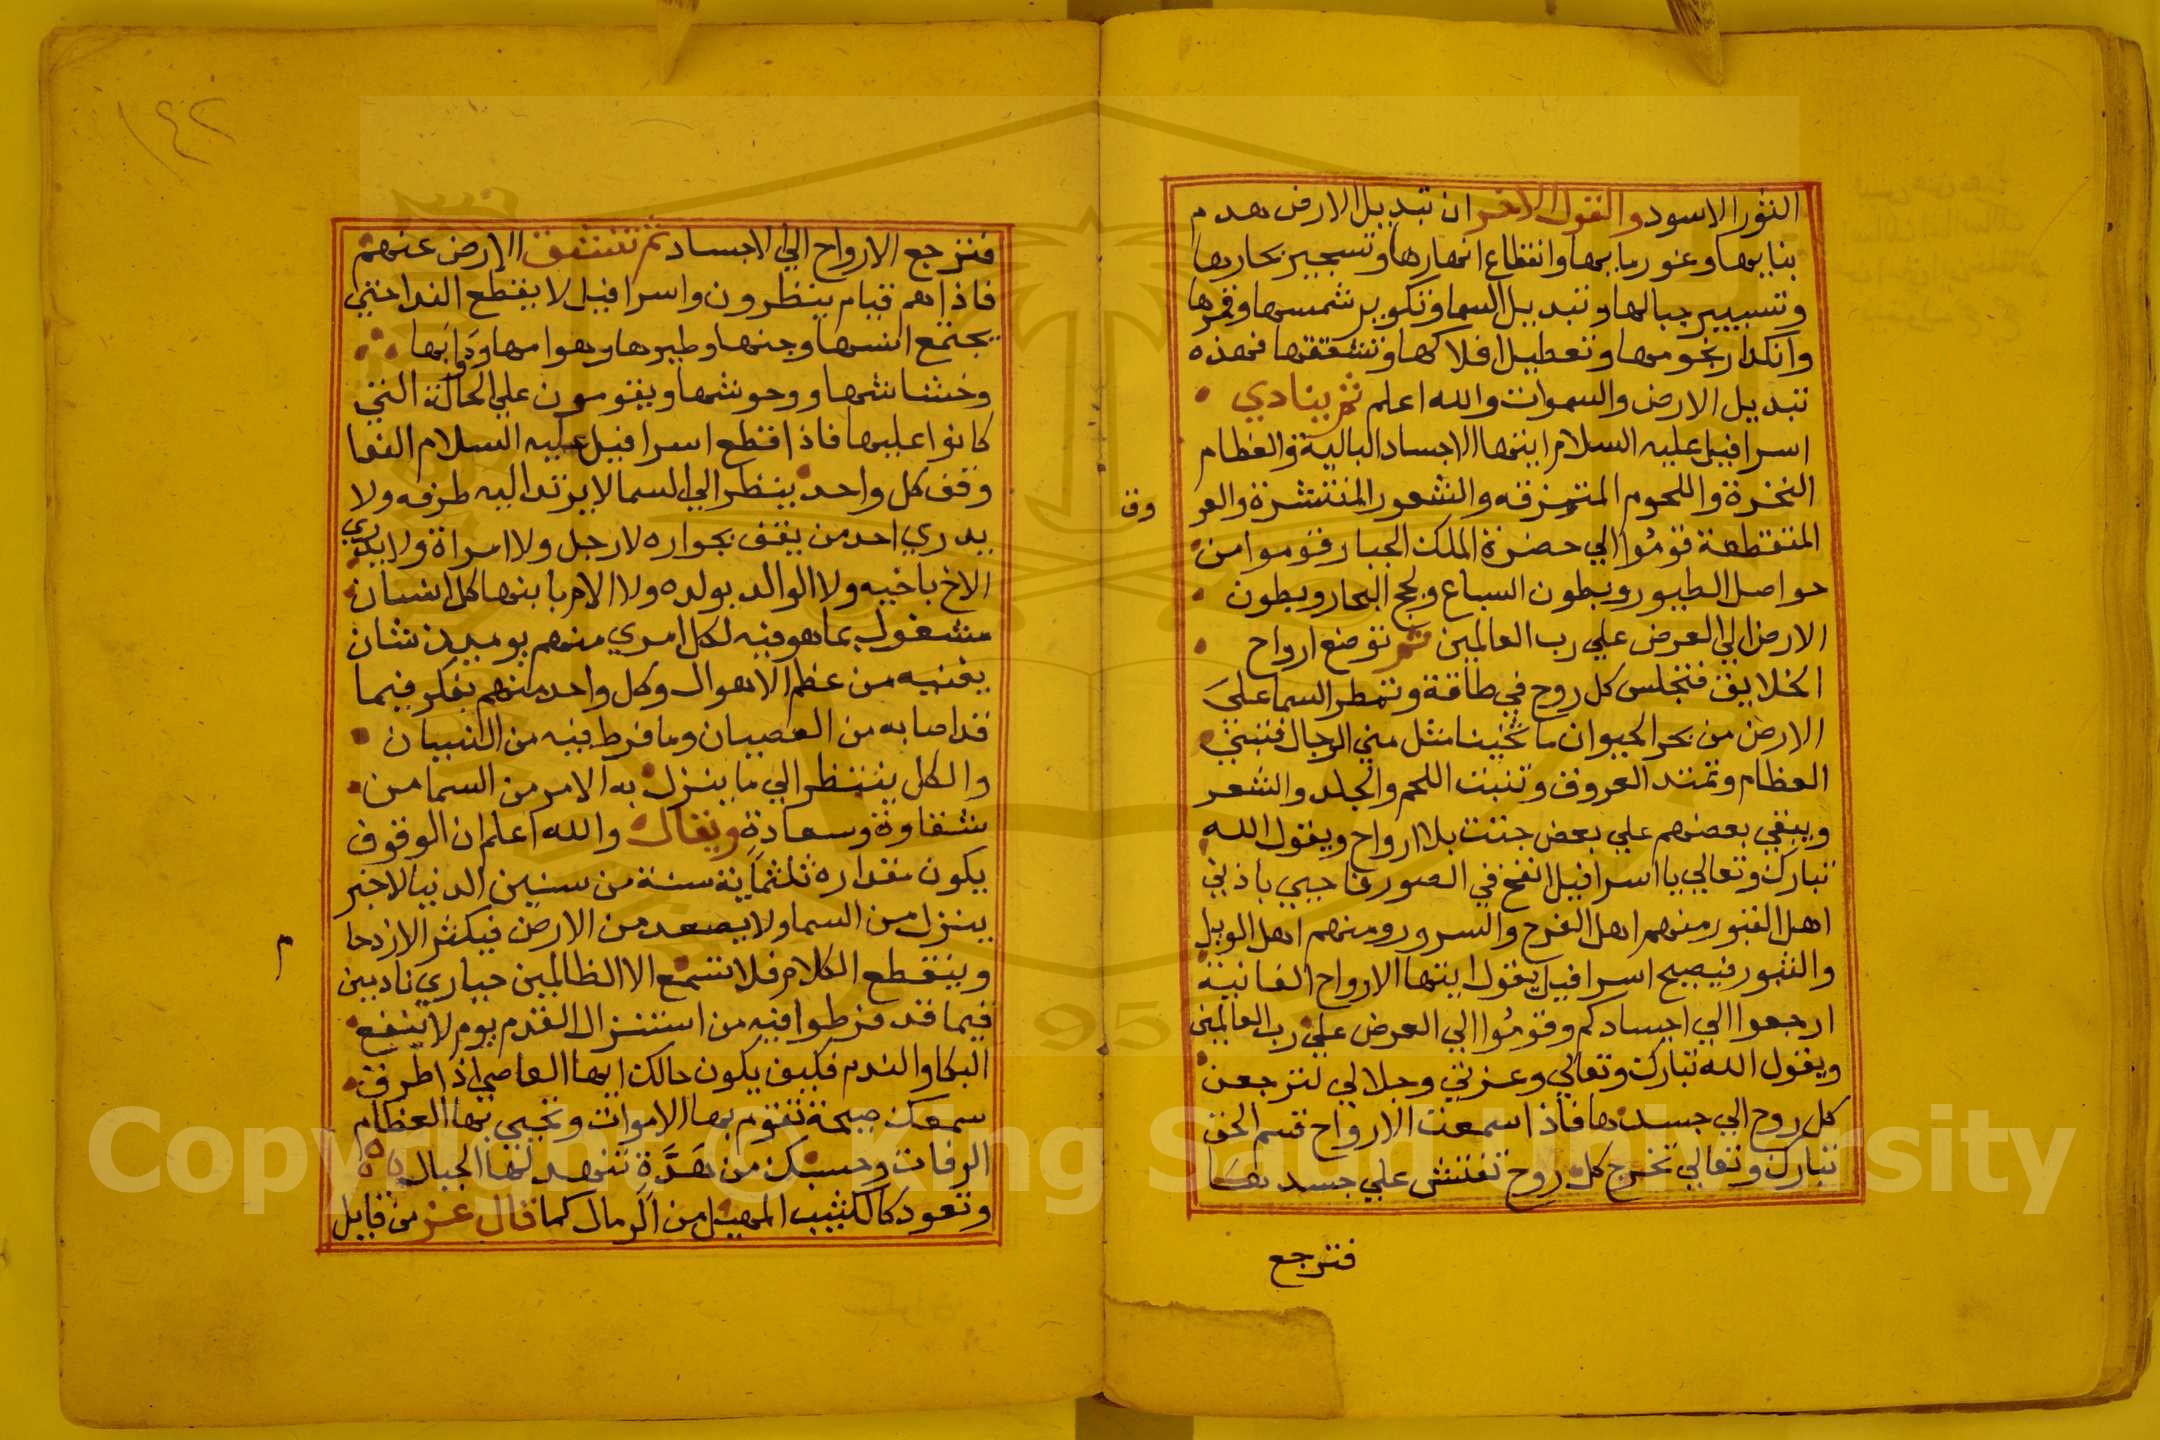 الثور الاسود والقول الاخر ان تبديل الارض هدم
بنايها وغور مايها وانقطاع انهارها وتسجير بحارها
وتسيير جبالها وتبديل السما وتكوير شمسها وقمرها
وانكدار نجومها وتعطيل افلاكها وتشققها فهذه
تبديل الارض والسموات والله اعلم ثم ينادي
اسرافيل عليه السلام ايتها الاجساد البالية والعظام
النخرة واللحوم المتمزقه والشعور المنتشرة والعر
وق
المتقطعة قوموا الي حضرة الملك الجبار فقوموا من
حواصل الطيور وبطون السباع ولجج البحار وبطون
الارض الي العرض علي رب العالمين ثم توضع ارواح
الخلايق فتجلس كل روح في طاقة وتمطر السما على
الارض من بحر الحيوان ما ثخينا مثل مني الرجال فتبني
العظام وتمتد العروق وتنبت اللحم والجلد والشعر
ويبقي بعضهم علي بعض جثث بلا ارواح ويقول الله
تبارك وتعالي يا اسرافيل انفخ في الصور فاحيي باذني
اهل القبور منهم اهل الفرح والسرور ومنهم اهل الويل
والثبور فيصيح اسرافيل يقول ايتها الارواح الفانية
ارجعوا الي اجسادكم وقوموا الي العرض علي رب العالمين
ويقول الله تبارك وتعالي وعزتي وجلالي لترجعن
كل روح الي جسدها فاذا سمعت الارواح قسم الحق
تبارك وتعالي تخرج كل روح تفتش علي جسدها
فترجع
١٤٢
فترجع الارواح الي الاجساد ثم تنشق الارض عنهم
فاذا هم قيام ينظرون واسرافيل لا يقطع الندا حتي
يجتمع انسها وجنها وطيورها وهوامها ودوابها
وخشاشها ووحوشها ويقومون علي الحالة التي
كانوا عليها فاذا قطع اسرافيل عليه السلام النفا
وقف كل واحد ينظر الي السما لا يرتد اليه طرفه ولا
يدري احد من يقف بجواره لا رجل ولا امراة ولا يدري
الاخ باخيه ولا الوالد بولده ولا الام بابنها كل انسان
مشغول بما هو فيه لكل امري منهم يوميذ شان
يغنيه من عظم الاهوال وكل واحد منهم يفكر فيما
قد اصابه من العصيان وما فرط فيه من النسيان
والكل ينتظر الي ما ينزل به الامر من السما من
شقاوة وسعادة ويقال والله اعلم ان الوقوف
يكون مقداره ثلثماية سنة من سنين الدنيا لا خبر
ينزل من السما ولا يصعد من الارض فيكثر الازدحا
م
وينقطع الكلام فلا تسمع الا الظالمين حياري نادبين
فيما قد فرطوا فيه من استنزال القدم يوم لا ينفع
البكا والندم فكيف يكون حالك ايها العاصي اذا طرق
سمعك صيحة تقوم بها الاموات وتحيي بها العظام
الرفات وحسبك من هدة تنهد لها الجبال
وتعود كالكثيب المهيل من الرمال كما قال عز من قايل
Copyright © King Saud University